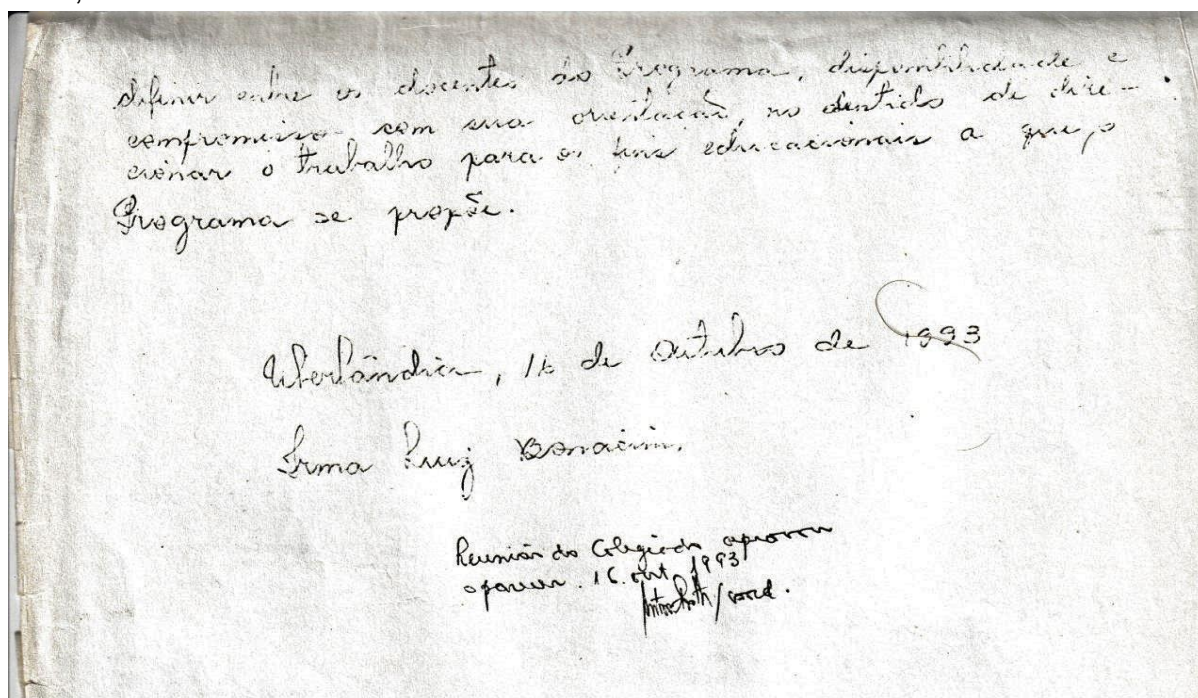 definir entre os docentes do Programa, disponibilidade e
compromisso com sua orientação, no sentido de dire-
cionar o trabalho para os fins educacionais a que o
Programa se propõe.
Uberlândia, 16 de Outubro de 1993
Irma Luiz
Reunião do Colegiado aprovou
o parecer. 16. out. 1993
/coord.